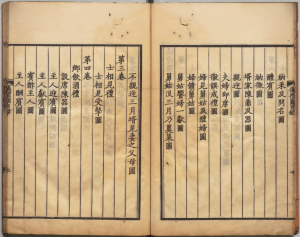 納采及問名圖
醴賓圖
納徵圖
壻家陳鼎及器圖
親迎圖
夫婦即席圖
徹饌成禮圖
婦見舅姑及醴婦圖
婦饋舅姑圖
舅姑饗婦一獻圖
舅姑沒三月乃奠菜圖
不親迎三月壻見妻之父母圖
第三卷
士相見禮
士相見受摯圖
第四卷
鄉飲酒禮
設席陳器圖
主人迎賓圖
主人獻賓圖
賓酢主人圖
主人酬賓圖